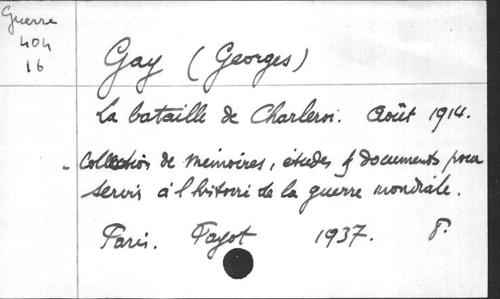 Guerre
404
16
Gay (Georges)
La bataille de Charleroi. Août 1914.
- Collection de mémoires, études & documents pour
servir à l'histoire de la guerre mondiale.
Paris. Payot 1937. 8°.